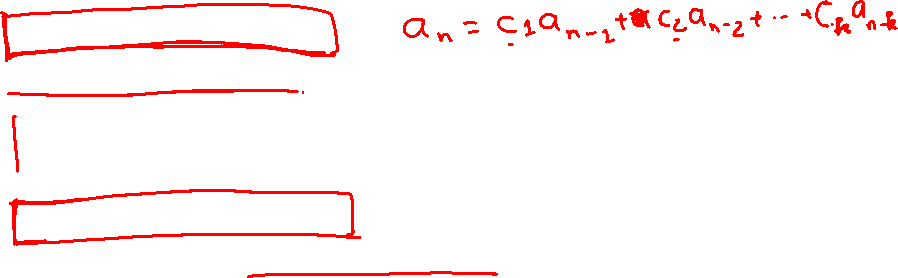 aₙ = c₁aₙ₋₁ + c₂aₙ₋₂ + ... + cₖaₙ₋ₖ